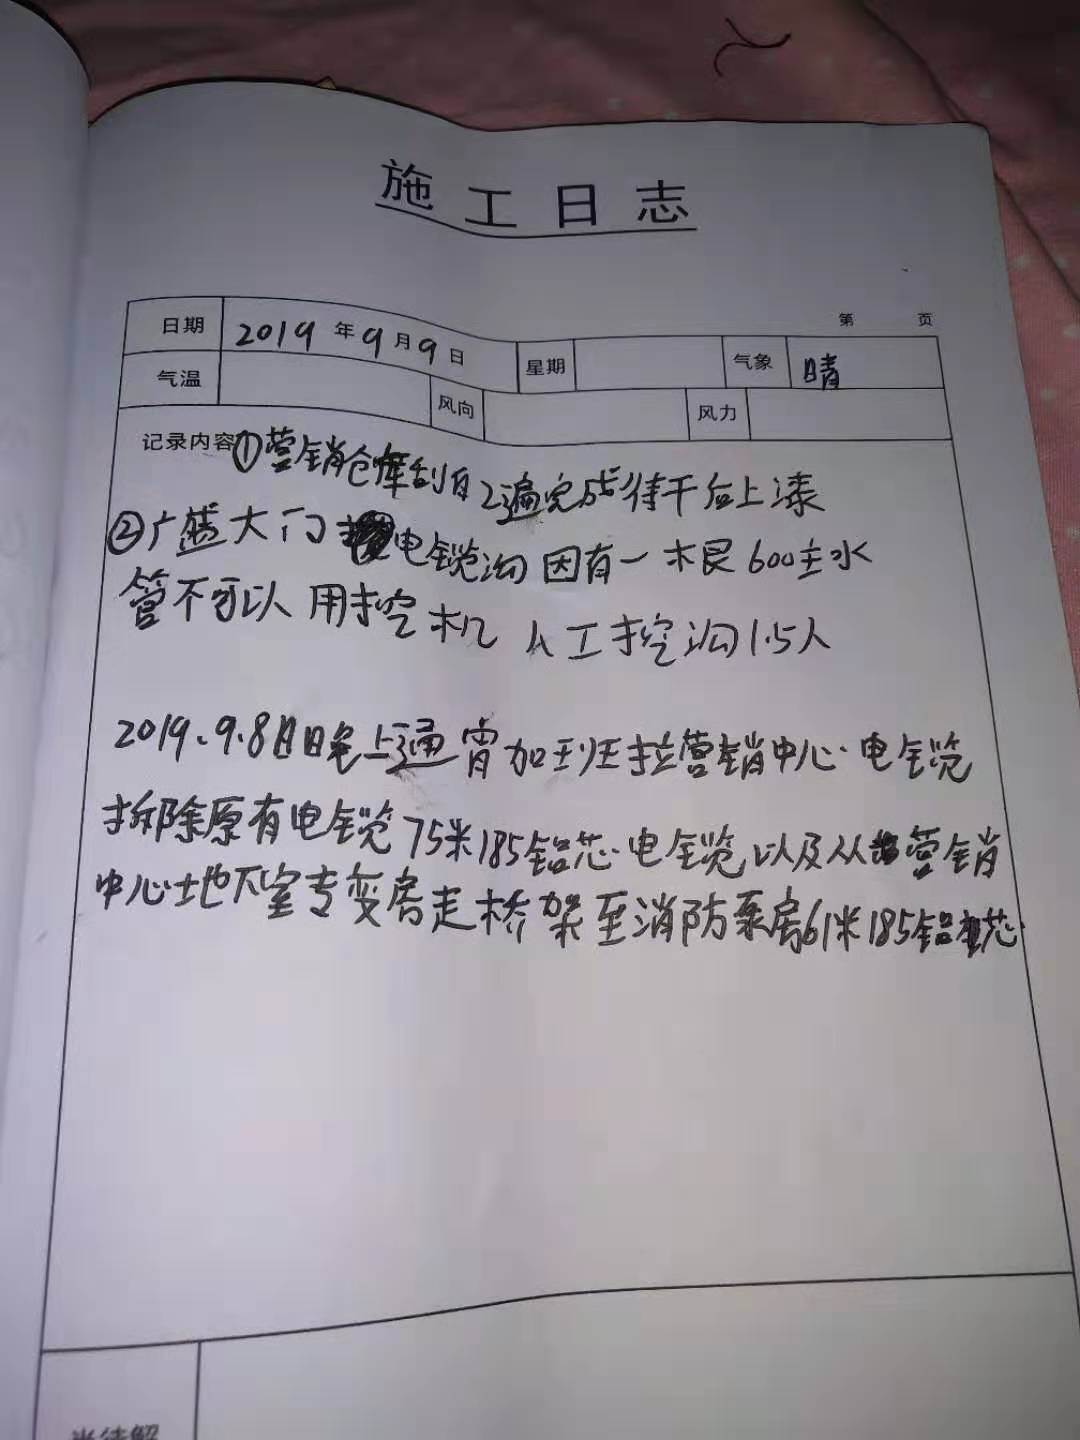 施工日志
第 页
日期 2019年9月9日 星期 气象 晴
气温 风向 风力
记录内容①营销仓库刮白2遍完成待干后上漆
②广盛大门电缆沟因有一根600主水
管不可以用挖机 人工挖沟1.5人
2019.9.8日晚上通宵加班拉营销中心电缆
拆除原有电缆75米185铝芯电缆以及从营销
中心地下室专变房走桥架至消防泵房61米185铝芯